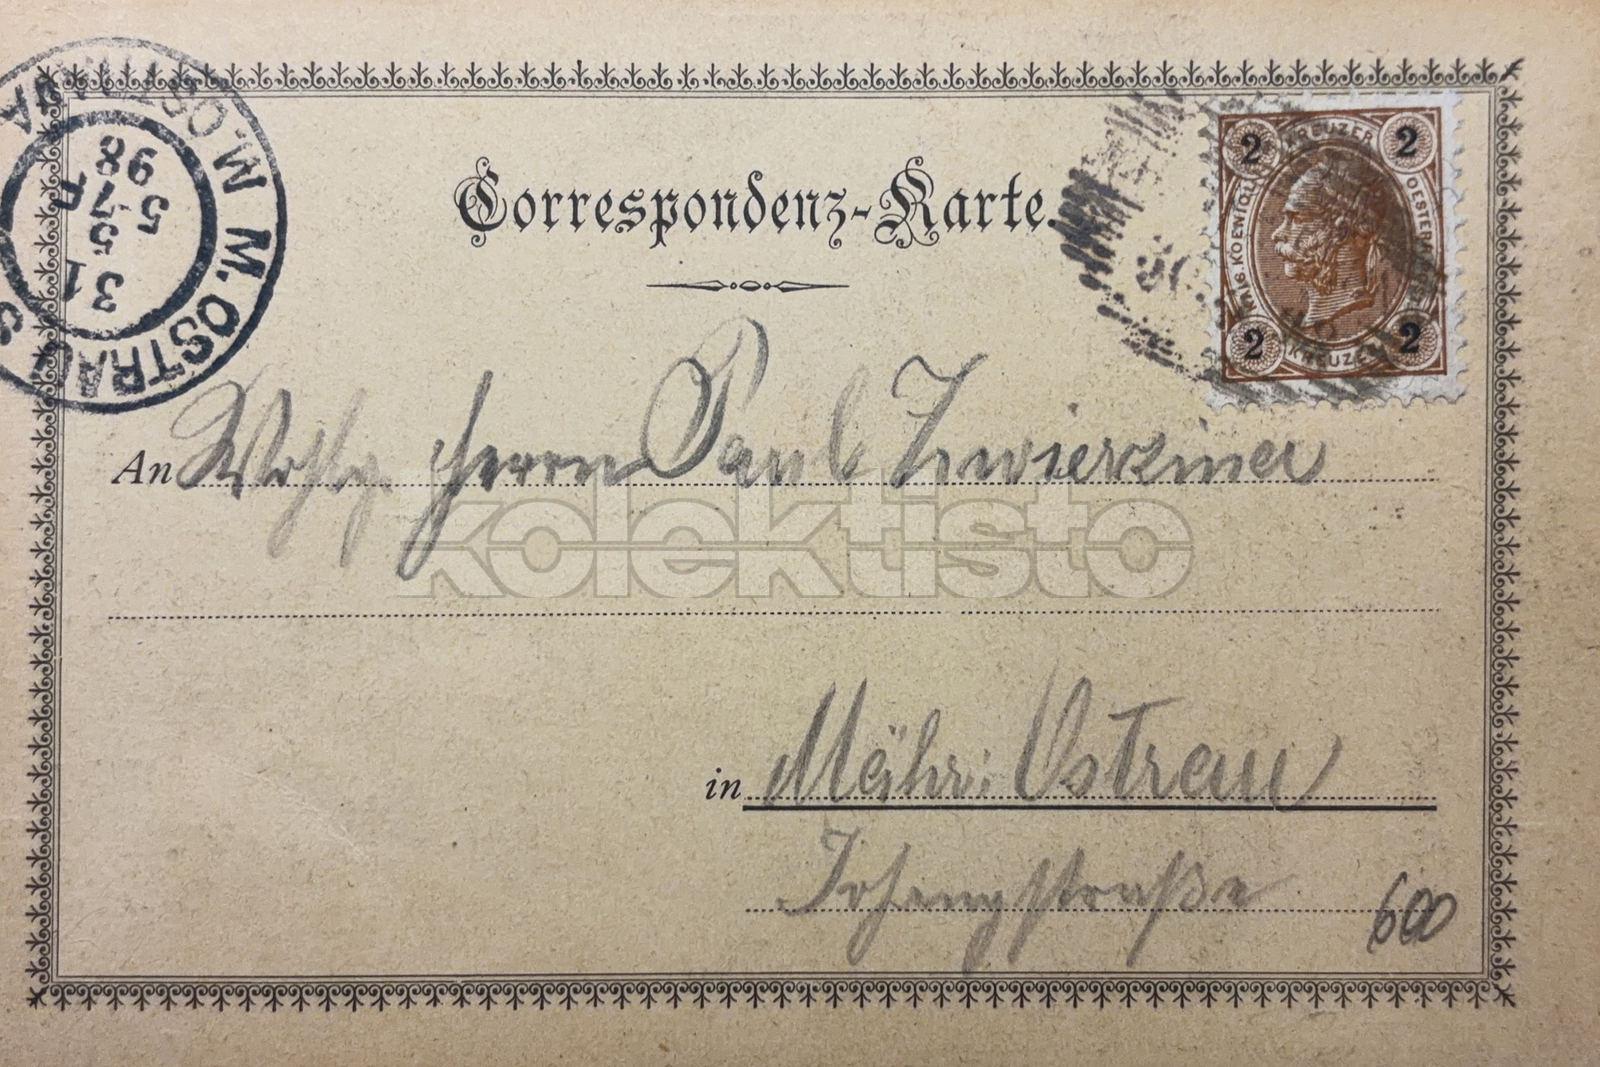 Correspondenz-Karte.
2 KREUZER 2
KAIS. KOENIGL. OESTERR.
2 KREUZER 2
M. OSTRAU
M. OSTRAVA
31 5
5 7 N
98
An Wohlg. Herrn Paul Zwierzina
kolektisto
in Mähr: Ostrau
straße
600